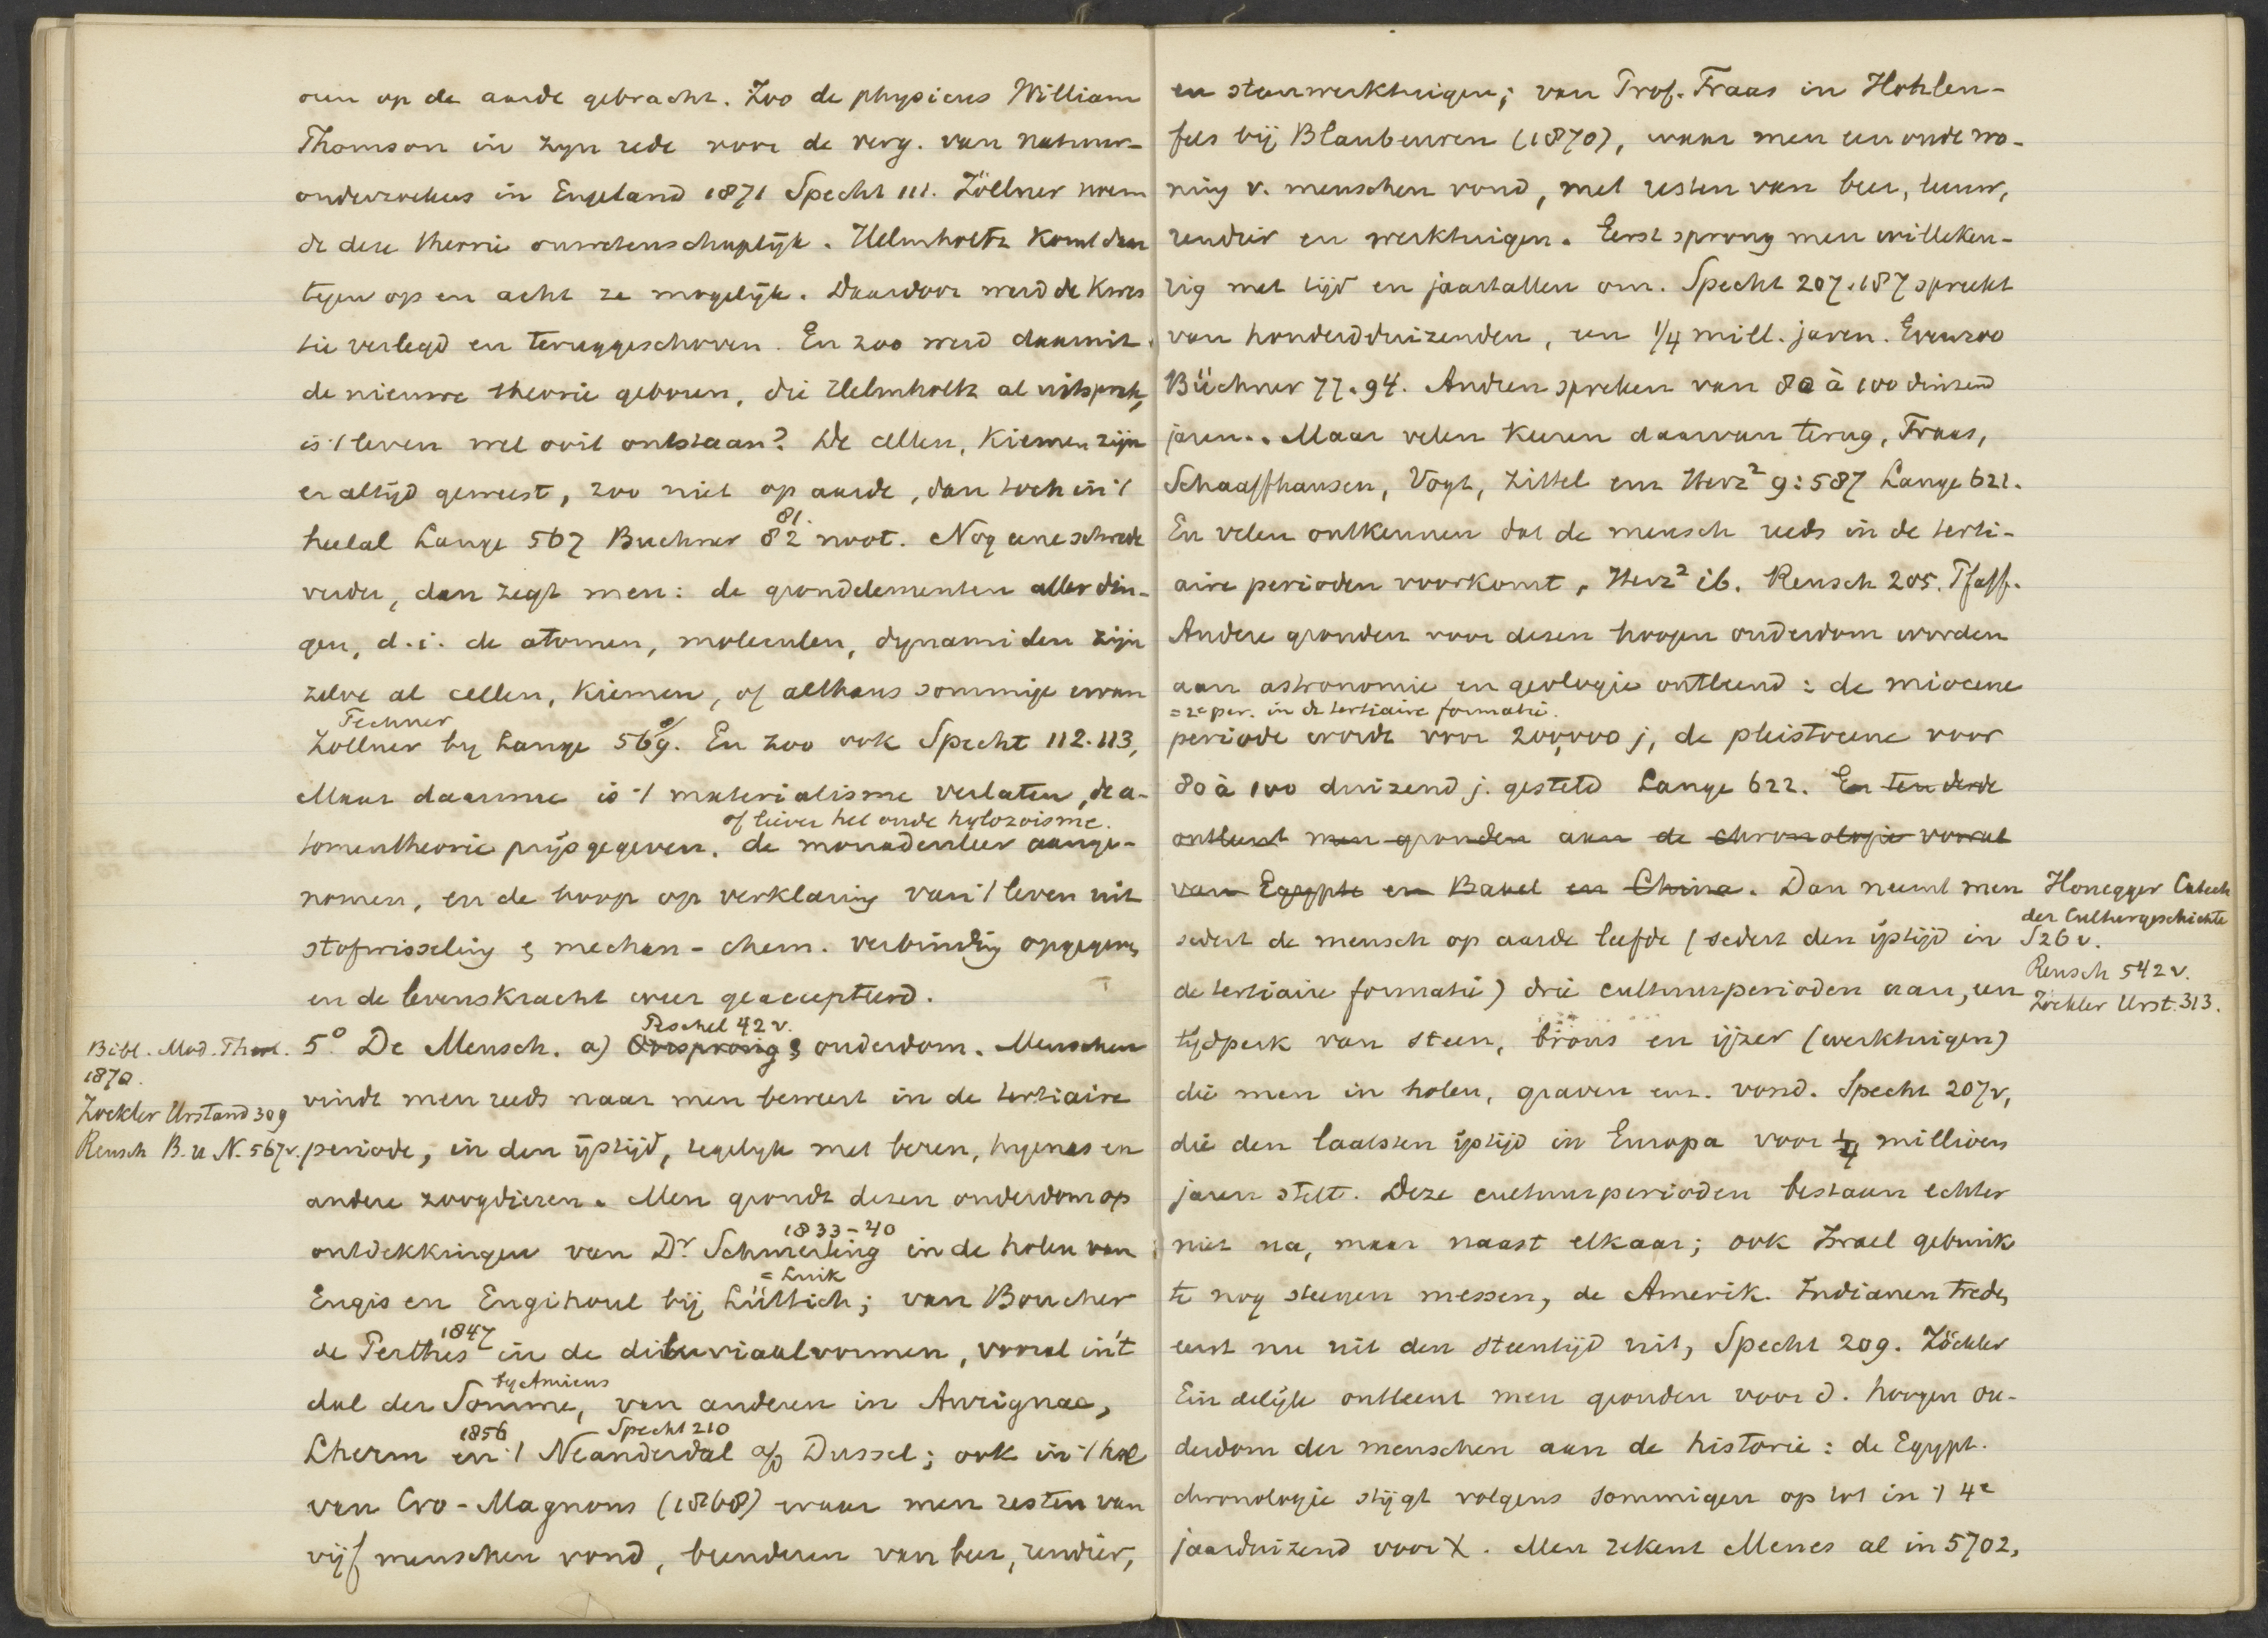 oen op de aarde gebracht. Zoo de physicus William
Thomson in zyn rede voor de verg. van natuur-
onderzoekers in Engeland 1871 Specht 111. Zöllner noem
de deze theorie onwetenschaplijk. Helmholtz komt daar
tegen op en acht ze mogelijk. Daardoor werd de kwes
tie verlegd en teruggeschoven. En zoo werd daaruit
de nieuwe theorie geboren, die Helmholtz al uitsprak,
is 't leven wel ooit ontstaan? De cellen, kiemen zijn
er altijd geweest, zoo niet op aarde, dan toch in 't
81.
heelal Lange 567 Buchner 82 noot. Nog eene schrede
verder, dan zegt men: de grondelementen aller din-
gen, d.i. de atomen, moleculen, dynamiden zijn
zelve al cellen, kiemen, of althans sommige ervan
Fechner
Zöllner by Lange 569. En zoo ook Specht 112.113,
Maar daarmee is 't materialisme verlaten, de a-
of liever het oude hylozoisme.
tomentheorie prijsgegeven, de monadenleer aange-
nomen, en de hoop op verklaring van 't leven uit
stofwisseling & mechan-chem. verbinding opgegeven
en de levenskracht weer geaccepteerd.
Peschel 42 v.
5.° De Mensch. a) Oorsprong & ouderdom. Menschen
Bibl. Mod. Theol.
1870.
Zockler Urstand 309
Reusch B. u N. 567v.
vindt men reeds naar men beweert in de tertiaire
periode, in den ijstijd, tegelijk met beren, hyenas en
andere zoogdieren. Men grondt dezen ouderdom op
1833-40
ontdekkingen van Dr Schmerling in de holen van
= Luik
Engis en Engihoul bij Lüttich; van Boucher
1847
de Perthes in de diluviaalvormen, vooral in 't
by Amiens
dal der Somme, van anderen in Aurignac,
1856 Specht 210
Lherm en 't Neanderdal a/d Dussel; ook in 't hol
van Cro-Magnons (1868) waar men resten van
vijf menschen vond, beenderen van beer, rendier,
en steenwerktuigen; van Prof. Fraas in Hohlen-
fels bij Blaubeuren (1870), waar men een oude wo-
ning v. menschen vond, met resten van beer, leeuw,
rendier en werktuigen. Eerst sprong men willeken-
rig met tijd en jaartallen om. Specht 207.187 spreekt
van honderdduizenden, een 1/4 mill. jaren. Evenzoo
Büchner 77.94. Andren spreken van 80 à 100 duizend
jaren. Maar velen keeren daarvan terug, Fraas,
Schaaffhausen, Vogt, Zittel enz Herz² 9:587 Lange 621.
En velen ontkennen dat de mensch reeds in de terti-
aire perioden voorkomt, Herz² ib. Reusch 205. Pfaff.
Andere gronden voor dezen hoogen ouderdom worden
aan astronomie en geologie ontleend: de miocene
= 2e per. in de tertiaire formatie.
periode wordt voor 200,000 j, de pleistocene voor
80 à 100 duizend j. gesteld Lange 622. En ten derde
ontleent men gronden aan de chronologie vooral
van Egypte en Babel en China. Dan neemt men
Honegger Catech
der Culturgeschichte
S26 v.
Reusch 542 v.
Zöckler Urst. 313.
sedert de mensch op aarde leefde (sedert den ijstijd in
de tertiaire formatie) drie cultuurperioden aan, een
tijdperk van steen, brons en ijzer (werktuigen)
die men in holen, graven enz. vond. Specht 207v,
die den laatsten ijstijd in Europa voor 1/4 millioen
jaren stelt. Deze cultuurperioden bestaan echter
niet na, maar naast elkaar; ook Israel gebruik
te nog steenen messen, de Amerik. Indianen treden
eerst nu uit den steentijd uit, Specht 209. Zöckler
Eindelijk ontleent men gronden voor d. hoogen ou-
derdom der menschen aan de historie: de Egypt.
chronologie stijgt volgens sommigen op tot in 't 4e
jaarduizend voor X. Men rekent Menes al in 5702,